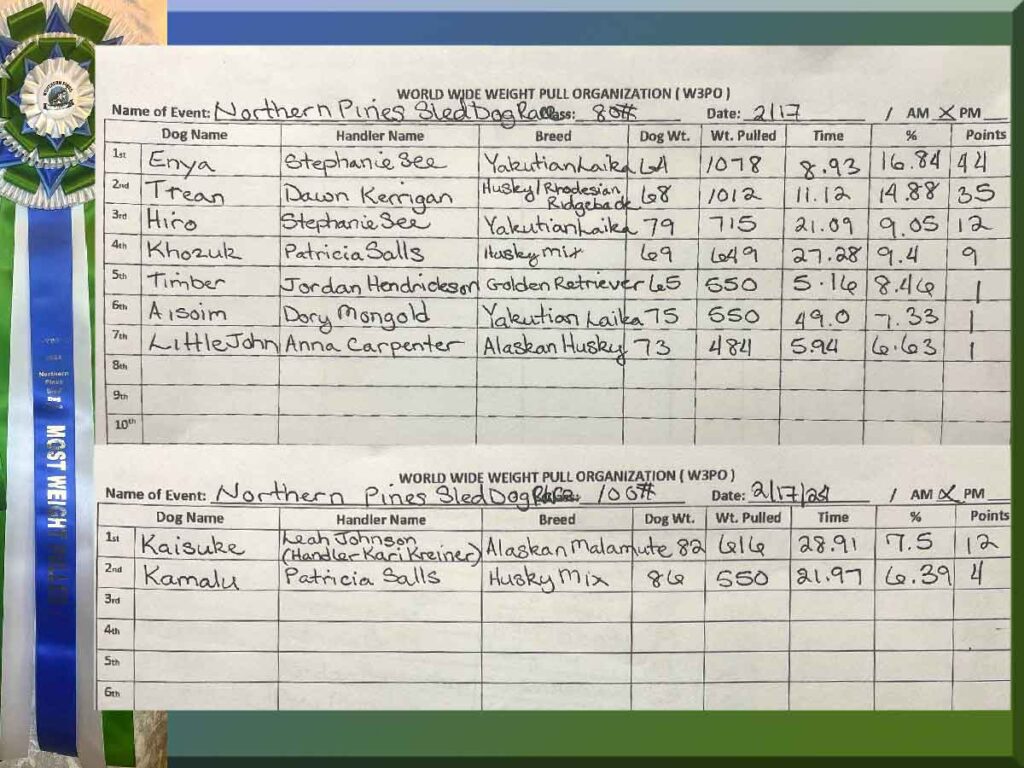 WORLD WIDE WEIGHT PULL ORGANIZATION ( W3PO )
Name of Event: Northern Pines Sled Dog Race Class: 80# Date: 2/17 / AM X PM
Dog Name Handler Name Breed Dog Wt. Wt. Pulled Time % Points
1st Enya Stephanie See Yakutian Laika 64 1078 8.93 16.84 44
2nd Trean Dawn Kerrigan Husky/Rhodesian Ridgeback 68 1012 11.12 14.88 35
3rd Hiro Stephanie See Yakutian Laika 79 715 21.09 9.05 12
4th Khozuk Patricia Salls Husky mix 69 649 27.28 9.4 9
5th Timber Jordan Hendrickson Golden Retriever 65 550 5.16 8.46 1
6th Aisoim Dory Mongold Yakutian Laika 75 550 49.0 7.33 1
7th Little John Anna Carpenter Alaskan Husky 73 484 5.94 6.63 1
8th
9th
10th
WORLD WIDE WEIGHT PULL ORGANIZATION ( W3PO )
Name of Event: Northern Pines Sled Dog Race 100# Date: 2/17/24 / AM X PM
Dog Name Handler Name Breed Dog Wt. Wt. Pulled Time % Points
1st Kaisuke Leah Johnson (Handler Kari Kreiner) Alaskan Malamute 82 616 28.91 7.5 12
2nd Kamalu Patricia Salls Husky Mix 86 550 21.97 6.39 4
3rd
4th
5th
6th
Northern
Pines
MOST WEIGHT